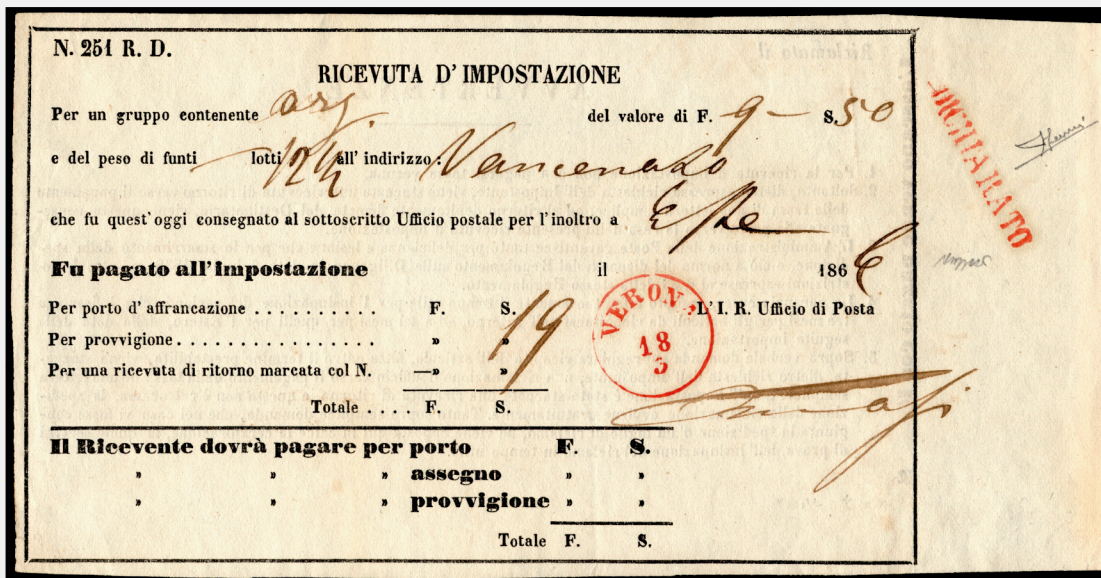 N. 251 R. D.
RICEVUTA D'IMPOSTAZIONE
Per un gruppo contenente arg. del valore di F. 9 — S. 50
e del peso di funti — lotti all' indirizzo:
che fu quest'oggi consegnato al sottoscritto Ufficio postale per l'inoltro a Este
Fu pagato all'impostazione il 1866
Per porto d'affrancazione . . . . . . . . . . F. S. 19 L'I. R. Ufficio di Posta
Per provvigione . . . . . . . . . . . . . . . . » »
Per una ricevuta di ritorno marcata col N. —» »
Totale . . . F. S.
VERONA
18
3
Il Ricevente dovrà pagare per porto F. S.
» » » assegno » »
» » » provvigione » »
Totale F. S.
DICHIARATO